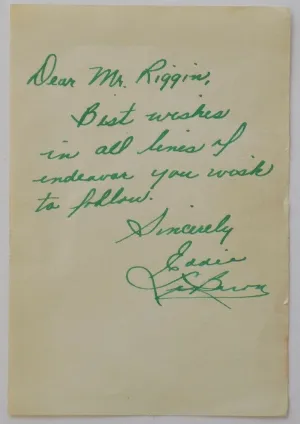 Dear Mr. Riggin,
Best wishes
in all lines of
endeavor you wish
to follow.
Sincerely
Eddie
LeBaron